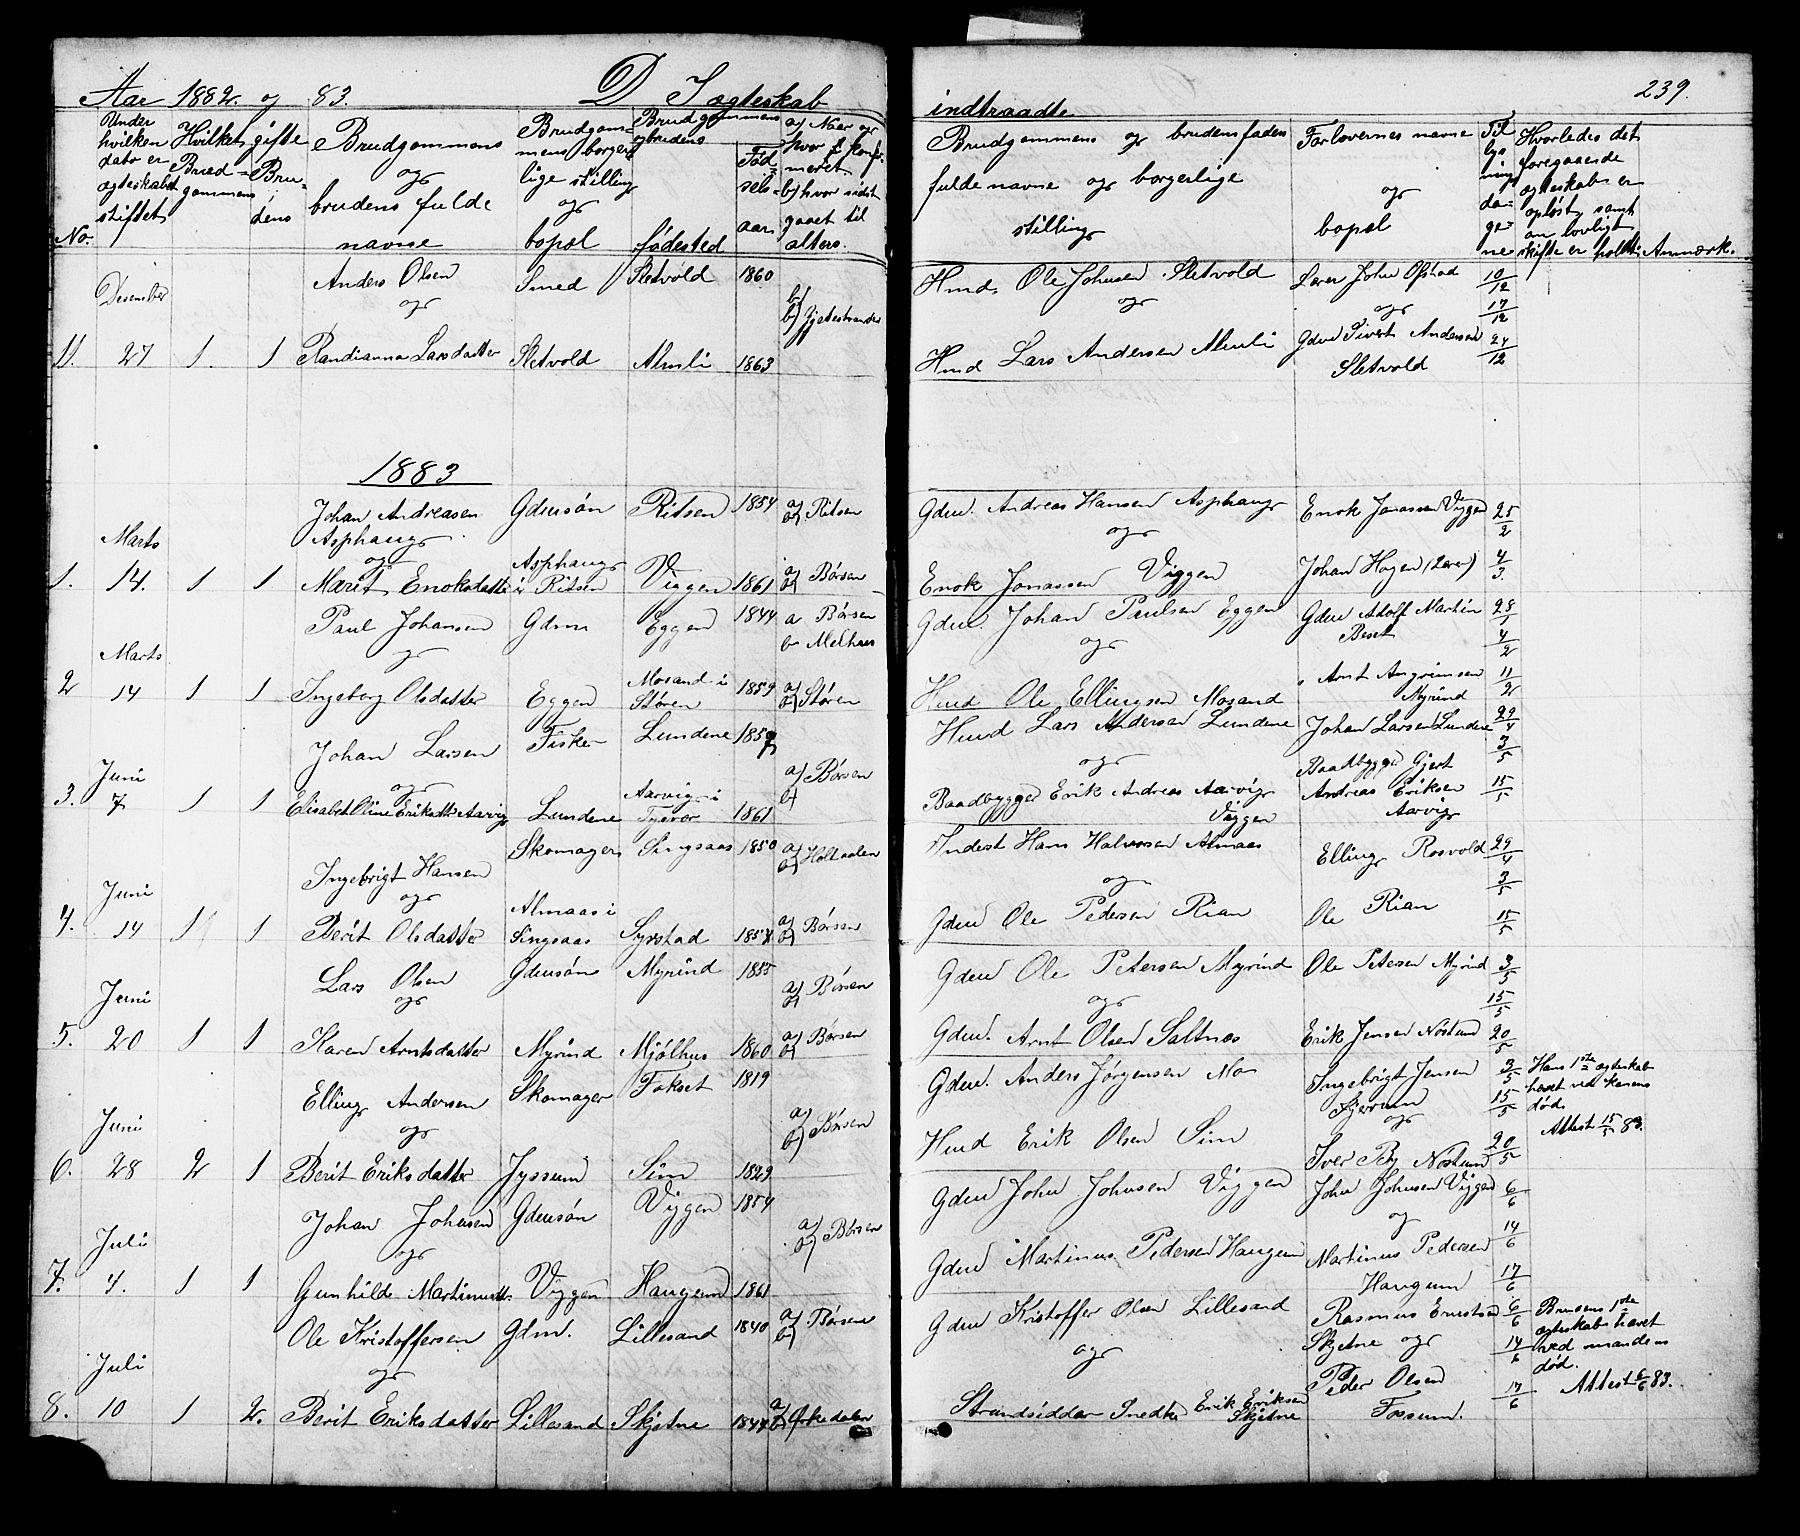 Aar 1882. og 83. D. I ægteskab
Under hvilken dato er ægteskabet stiftet
Hvilket Brud= gommens
gifte Bru= dens
Brudgommens og brudens fulde navne
Brudgom= mens borger lige stilling og bopæl
Brudgommens og brudens
fødested
Fød sels= aar
a) Naar og hvor konfir meret
b) hvor sidst gaaet til alters.
No.
Desember
Anders Olsen Smed Sletvold 1860
og
b) Gjetestranden
11. 27 1. 1 Randianna Larsdatter Sletvold Almli 1863
1883
Johan Andreasen Gdmsøn Ritsen 1854 a) b) Ritsen
Asphaug
Marts
og Asphaug
1. 14. 1 1 Marit Enoksdatter i Ritsen Viggen 1861 a) b) Børsen
Paul Johansen Gdm Eggen 1844 a Børsen
b Melhus
Marts
og
2 14 1 1 Ingeborg Olsdatter Eggen Mosand i Støren 1859 a) b) Støren
Johan Larsen Fisker Lundene 1859
Juni
og
a) b) Børsen
3. 7 1 1 Elisabet Oline Eriksdtr Aarvig Lundene Aarvig i Tysvær 1861
Ingebrigt Hansen Skomager Singsaas 1850 a) b) Holtaalen
Juni
og Almaas i
4. 14 1 1 Berit Olsdatter Singsaas Syrstad 1857 a) b) Børsen
Lars Olsen Gdmsøn Myrind 1855 a) b) Børsen
Juni
og
5. 20 1 1 Karen Arntsdatter Myrind Mjølhus 1860 a) b) Børsen
Elling Andersen Skomager Fokset 1819
Juni
og
a) b) Børsen
6. 28 2 1 Berit Eriksdatter Jyssum Sim 1829
Johan Johnsen Gdmsøn Viggen 1854
Juli
og
a) b) Børsen
7. 4. 1 1 Gunhilde Martinusdtr. Viggen Haugum 1861
Ole Kristoffersen Gdm. Lillesand 1840 a) b) Børsen
Juli
og
8. 10 1 2. Berit Eriksdatter Lillesand Skjetne 1844 a) b) Orkedalen
239.
indtraadte
Brudgommens og brudens fædres fulde navne og borgerlige stilling
Forlovernes navne og bopæl
Til lys nings da= ge= ne
Hvorledes det foregaaende ægteskab er opløst, samt om lovligt skifte er holdt.
Anmærk.
Hmd. Ole Johnsen Sletvold Lærer John Opstad 10/12
og og 17/12
Hmd Lars Andersen Almli Gdm Sivert Andersen Sletvold 24/12
Gdm. Andreas Hansen Asphaug Enok Jonassen Viggen 25/2
og
Enok Jonassen Viggen Johan Hogen (Lærer) 4/3
Gdm. Johan Paulsen Eggen Gdm Adolf Martin 28/1
og Beset 4/2
Hmd Ole Ellingsen Mosand Arnt Angrimsen Myrind 11/2
Hmd Lars Andersen Lundene Johan Larsen Lundene 29/4
og Baadbygger Gjert 3/5
Baadbygger Erik Andreas Aarvig Viggen Andreas Eriksen Aarvig 15/5
Inderst Hans Halvorsen Almaas Elling Rosvold 29/4
og 3/5
Gdm Ole Pedersen Rian Ole Rian 15/5
Gdm Ole Petersen Myrind Ole Petersen Myrind 3/5
og 15/5
Gdm. Arnt Olsen Saltnes Erik Jensen Nostum 20/5
Gdm. Anders Jørgensen Mo Ingebrigt Jensen 3/5 Hans 1ste ægteskab
Gjerrum 15/5 hævet ved konens død.
og
Attest 15/5 83.
Hmd Erik Olsen Sim Iver By Nostum 20/5
Gdm John Johnsen Viggen John Johnsen Viggen 6/6
og 14/6
Gdm Martinus Pedersen Haugum Martinus Pedersen Haugum 17/6
Gdm Kristoffer Olsen Lillesand Rasmus Erntsen 6/6 Brudens 1ste
og Skjetne og 14/6 ægteskab hævet ved mandens død.
Strandsidder Snedker Erik Eriksen Skjetne Peder Olsen Fossum. 17/6 Attest 6/6 83.